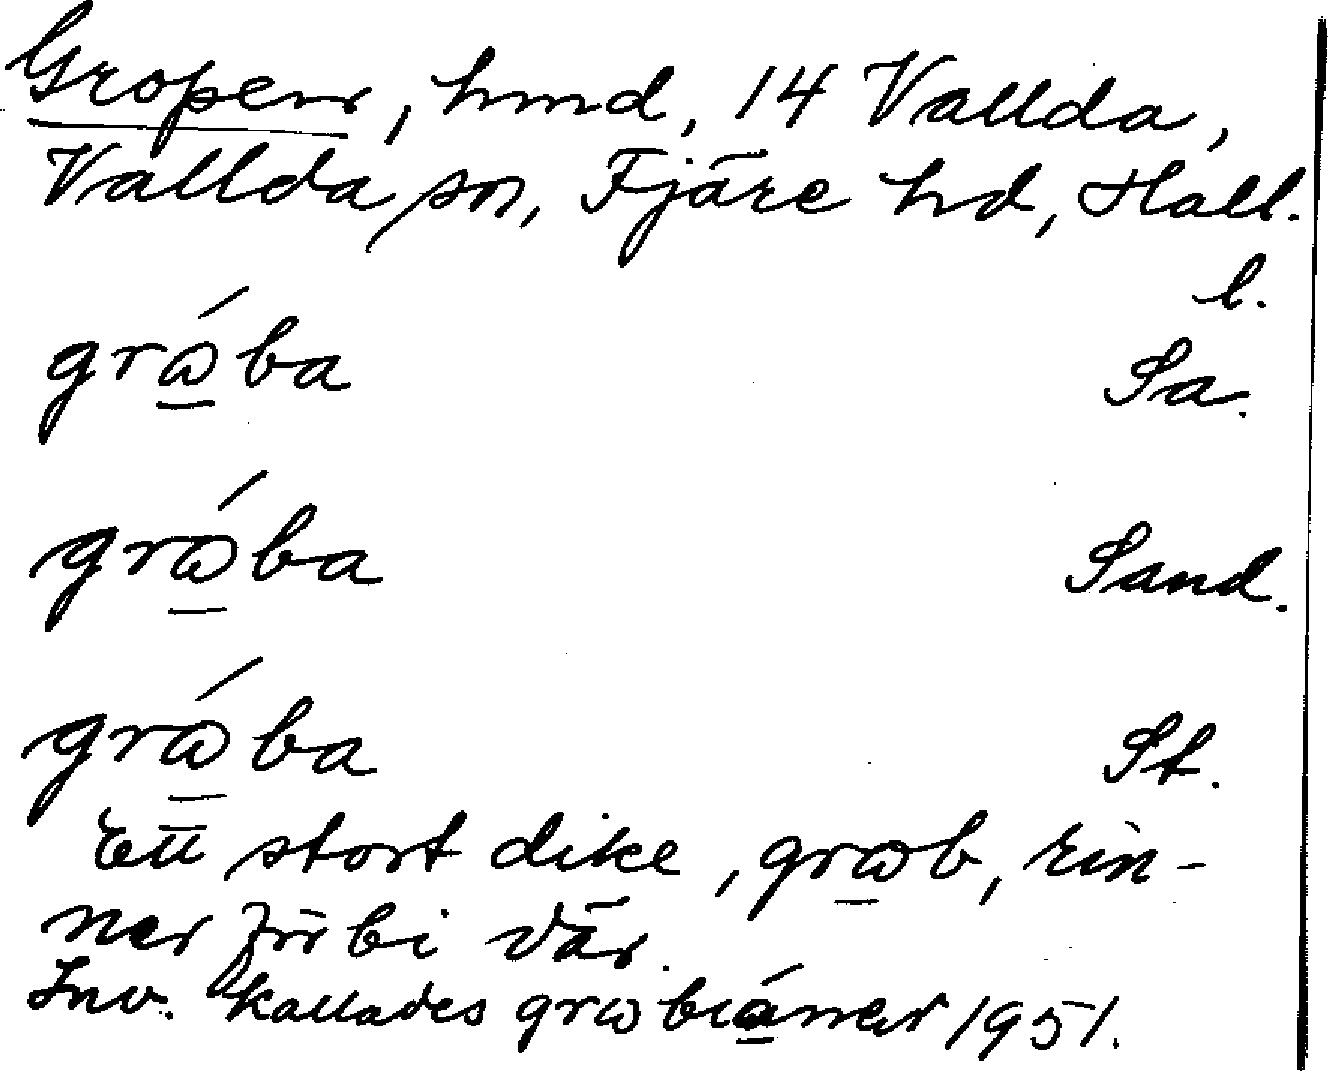 Gropen, hmd, 14 Vallda,
Vallda sn, Fjäre hd, Hall.
l.
grɷ́ba Sa.
grɷ́ba Sand.
grɷ́ba St.
Ett stort dike, grɷb, rin-
ner förbi där.
Inv. kallades grɷbiánar 1951.